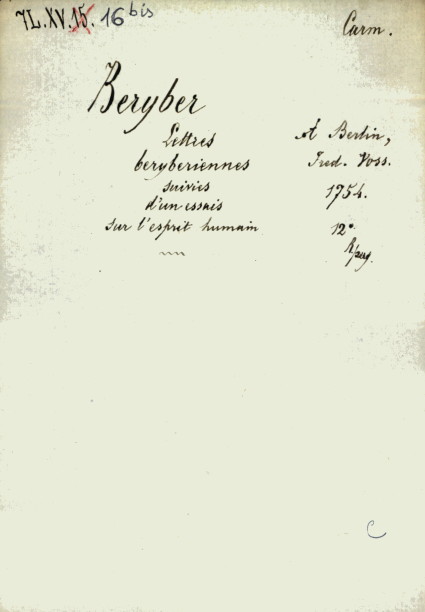 7L.XV.15. 16 bis
Carm.
Beryber
Lettres
beryberiennes
suivies
d'un essais
sur l'esprit humain
A Berlin,
Fred. Voss.
1754.
12°
C